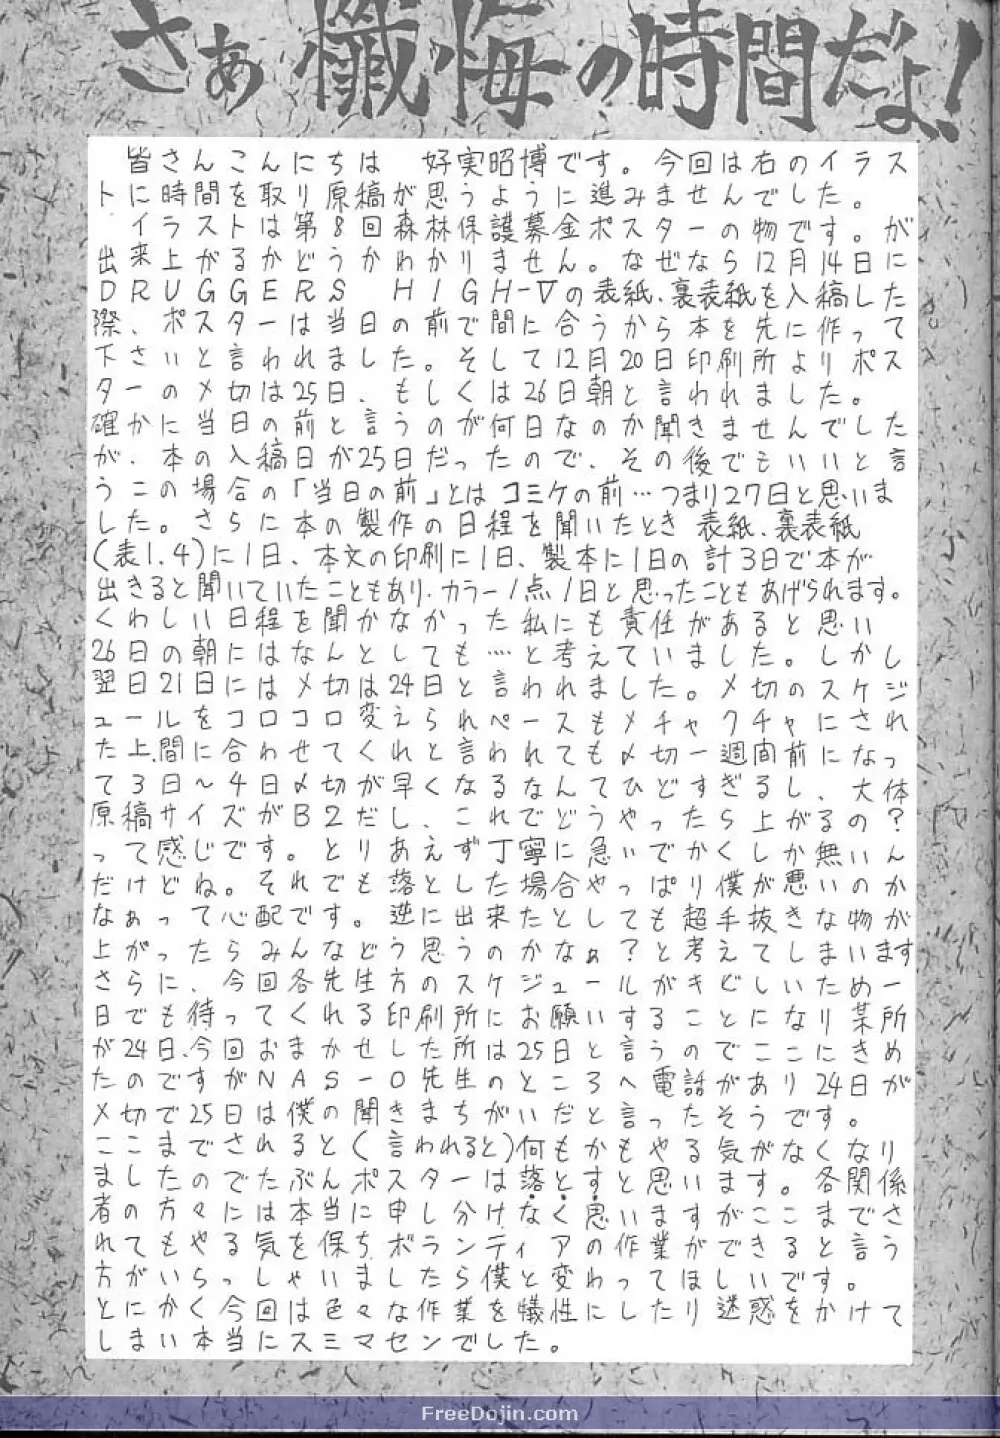 さあ懺悔の時間だよ!
皆さんこんにちは 好実昭博です。今回は右のイラス
トに時間を取り原稿が思うように進みませんでした。
イラストは第8回森林保護募金ポスターの物です。が
出来上がるかどうかわかりません。なぜなら12月14日に
DRUGGERS HIGH-Vの表紙、裏表紙を入稿した
際、ポスターは当日の前で間に合うから本を先に作って
下さいと言われました。そして12月20日印刷所よりポス
ターの〆切は25日、もしくは26日朝と言われました。
確かに当日の前と言うのが何日なのか聞きませんでした
が、本の入稿日が25日だったので、その後でもいいと言
うこの場合の「当日の前」とはコミケの前…つまり27日と思いま
した。さらに本の製作の日程を聞いたとき表紙、裏表紙
(表1.4)に1日、本文の印刷に1日、製本に1日の計3日で本が
出きると聞いていたこともあり、カラー1点1日と思ったこともあげられます。
くわしい日程を聞かなかった私にも責任があると思い
26日の朝にはなんとしても…と考えていました。しかし
翌日21日には〆切は24日と言われました。〆切のスケジ
ュールをコロコロ変えられペースもメチャクチャにされ
た上、間に合わせてくれと言われても〆切一週間前になっ
て3日〜4日〆切が早くなるなんてひどすぎるし、大体
原稿サイズがB2だし、これでどうやったら上がるの?
って感じです。とりあえず丁寧に急いでかくしか無いん
だけどね。それでも落とした場合やっぱり僕が悪いのか
なぁって心配です。逆に出来たとしても超手抜きな物が
上がったらみんなどう思うのかなぁ?と考えてしまいます
さらに、今回各先生方のスケジュールがきびしいため一
日でも待ってくれる印刷所にお願いすることになり某所
が24日、今回おまかせした所は25日と言うのでここにきめ
たのですがNAS-O先生のところへ電話があり24日が
〆切で25日は僕の聞きまちがいだと言ったそうです。
ここまでされると(言われると)何もかもやる気がなくなり
ましたのでたぶんポスターは落とすと思います。各関係
者の方々には本当に申し分けなく思いますがここまでさ
れてもやる気を保ちボランティアの作業ができると言う
方がいらっしゃいましたら僕と変わってほしいです。
とにかく今回は色々な作業を犠牲にしたり迷惑をかけて
しまい本当にスミマセンでした。
FreeDojin.com